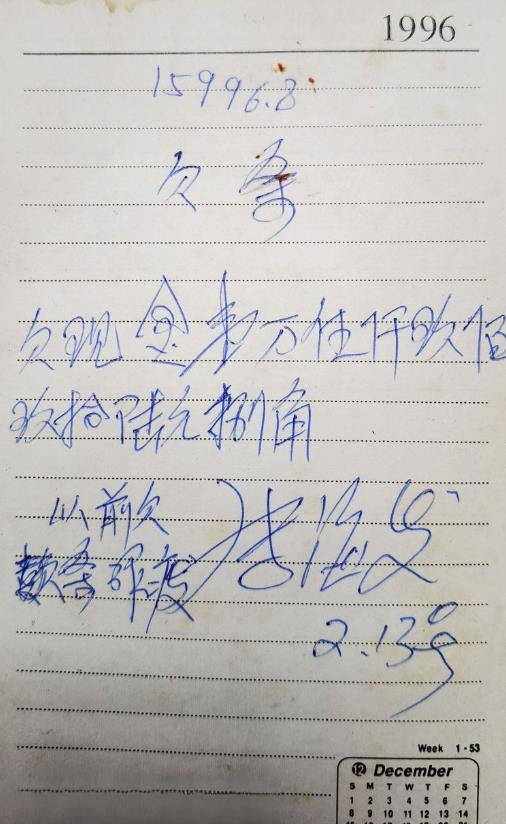 1996
15996.8
欠条
欠现金壹万伍仟玖佰
玖拾陆元捌角
以前欠
款条作废
2.13号
Week 1-53
12 December
S M T W T F S
1 2 3 4 5 6 7
8 9 10 11 12 13 14